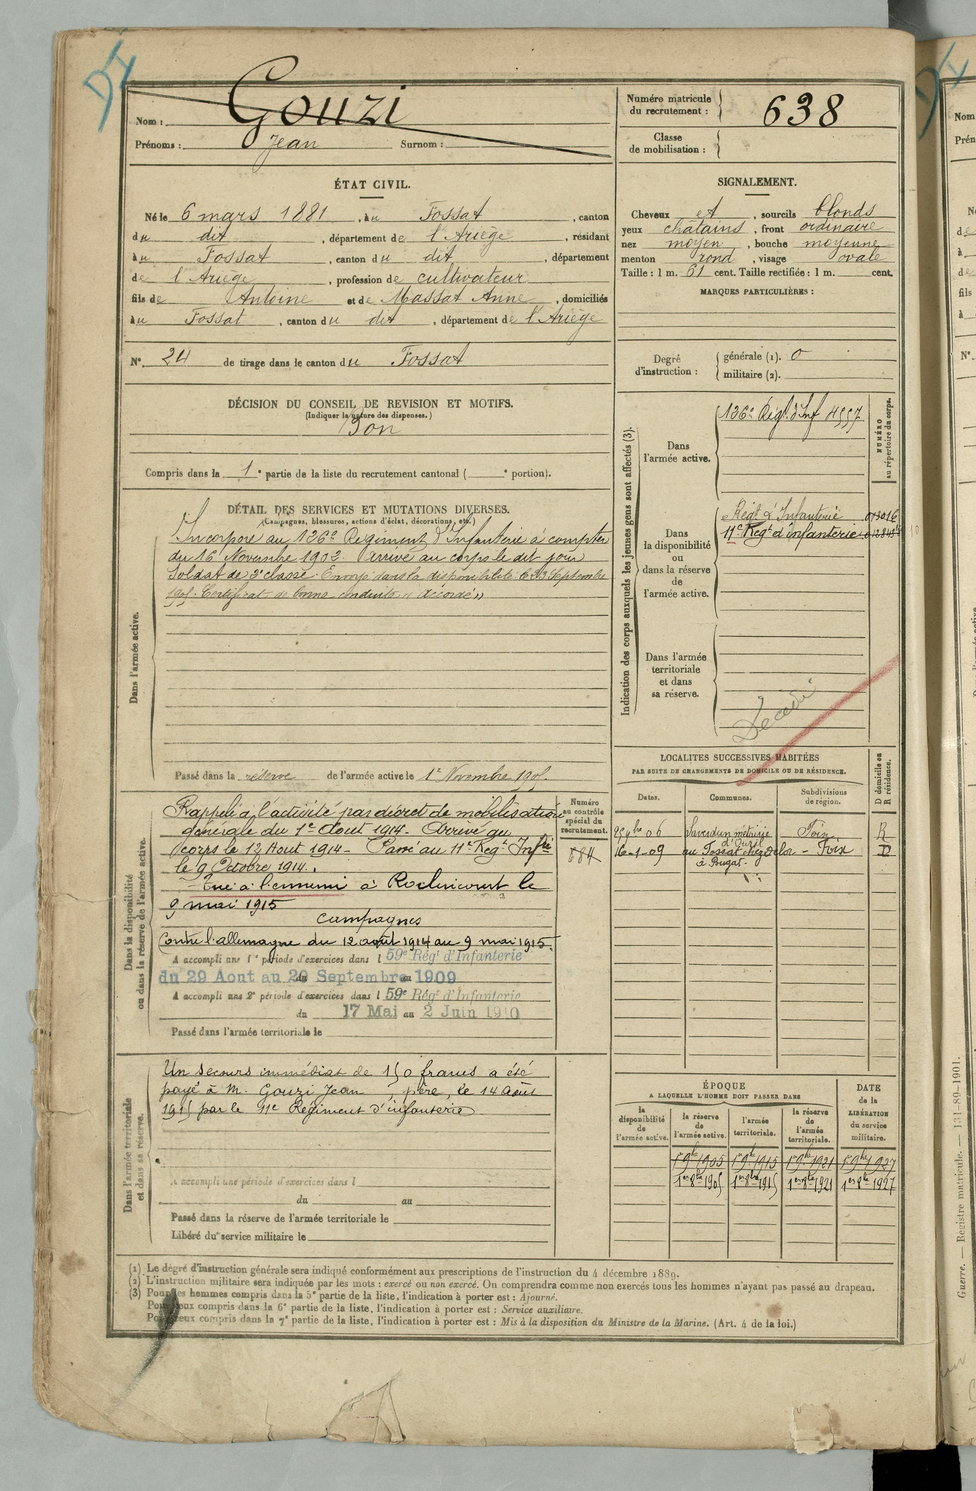 Nom : Gouzi
Prénoms : Jean Surnom :
Numéro matricule du recrutement : 638
Classe de mobilisation :
ÉTAT CIVIL.
Né le 6 mars 1881, à u Fossat, canton
du dit, département de l'Ariège, résidant
à u Fossat, canton du dit, département
de l'Ariège, profession de cultivateur
fils de Antoine et de Massat Anne, domiciliés
à u Fossat, canton du dit, département de l'Ariège
N° 24 de tirage dans le canton du Fossat
SIGNALEMENT.
Cheveux et, sourcils blonds
yeux châtains, front ordinaire
nez moyen, bouche moyenne
menton rond, visage ovale
Taille : 1 m. 61 cent. Taille rectifiée : 1 m. cent.
MARQUES PARTICULIÈRES :
Degré d'instruction : générale (1). 0
militaire (2).
DÉCISION DU CONSEIL DE REVISION ET MOTIFS.
(Indiquer la nature des dispenses.)
Bon
Compris dans la 1e partie de la liste du recrutement cantonal ( e portion).
DÉTAIL DES SERVICES ET MUTATIONS DIVERSES.
(Campagnes, blessures, actions d'éclat, décorations, etc.)
Dans l'armée active.
Incorporé au 136e Régiment d'Infanterie à compter
du 16 Novembre 1902. Arrivé au corps le dit jour
Soldat de 2e classe. Envoyé dans la disponibilité le Septembre
Certificat de bonne conduite « accordé »
Passé dans la réserve de l'armée active le 1er Novembre 1905.
Indication des corps auxquels les jeunes gens sont affectés (3).
NUMÉRO au répertoire du corps.
Dans l'armée active.
136e Régt d'Inf 4557
Dans la disponibilité ou dans la réserve de l'armée active.
Régt d'Infanterie
11e Régt d'Infanterie
Dans l'armée territoriale et dans sa réserve.
Décédé
Dans la disponibilité ou dans la réserve de l'armée active.
Numéro au contrôle spécial du recrutement.
884
Rappelé à l'activité par décret de mobilisation
générale du 1er Août 1914. Arrivé au
corps le 12 Août 1914 - Passé au 11e Régt Infie
le 9 Octobre 1914.
Tué à l'ennemi à Roclincourt le
9 mai 1915
Campagnes
Contre l'allemagne du 12 août 1914 au 9 mai 1915.
A accompli une 1e période d'exercices dans l 59e Régt d'Infanterie
du 29 Aout au 20 Septembre 1909
A accompli une 2e période d'exercices dans l 59e Régt d'Infanterie
du 17 Mai au 2 Juin 1910
Passé dans l'armée territoriale le
LOCALITES SUCCESSIVES HABITÉES
PAR SUITE DE CHANGEMENTS DE DOMICILE OU DE RÉSIDENCE.
Dates. Communes. Subdivisions de région. D domicile ou R résidence.
Saverdun métairie Foix R
16-1-09 au Fossat chez Delor - Foix D
à Pugat.
Dans l'armée territoriale et dans sa réserve.
Un secours immédiat de 150 francs a été
payé à M. Gouzi Jean, père, le 14 Août
1915 par le 11e Régiment d'infanterie
A accompli une période d'exercices dans l
du au
Passé dans la réserve de l'armée territoriale le
Libéré du service militaire le
ÉPOQUE
A LAQUELLE L'HOMME DOIT PASSER DANS
la disponibilité de l'armée active. la réserve de l'armée active. l'armée territoriale. la réserve de l'armée territoriale.
DATE de la LIBÉRATION du service militaire.
1 9bre 1905 1 9bre 1915 1 9bre 1921 1 9bre 1927
1er 8bre 1905 1er 8bre 1915 1er 8bre 1921 1er 8bre 1927
(1) Le degré d'instruction générale sera indiqué conformément aux prescriptions de l'instruction du 4 décembre 1889.
(2) L'instruction militaire sera indiquée par les mots : exercé ou non exercé. On comprendra comme non exercés tous les hommes n'ayant pas passé au drapeau.
(3) Pour les hommes compris dans la 5e partie de la liste, l'indication à porter est : Ajourné.
Pour ceux compris dans la 6e partie de la liste, l'indication à porter est : Service auxiliaire.
Pour ceux compris dans la 7e partie de la liste, l'indication à porter est : Mis à la disposition du Ministre de la Marine. (Art. 4 de la loi.)
Guerre. — Registre matricule. — 131-89-1901.